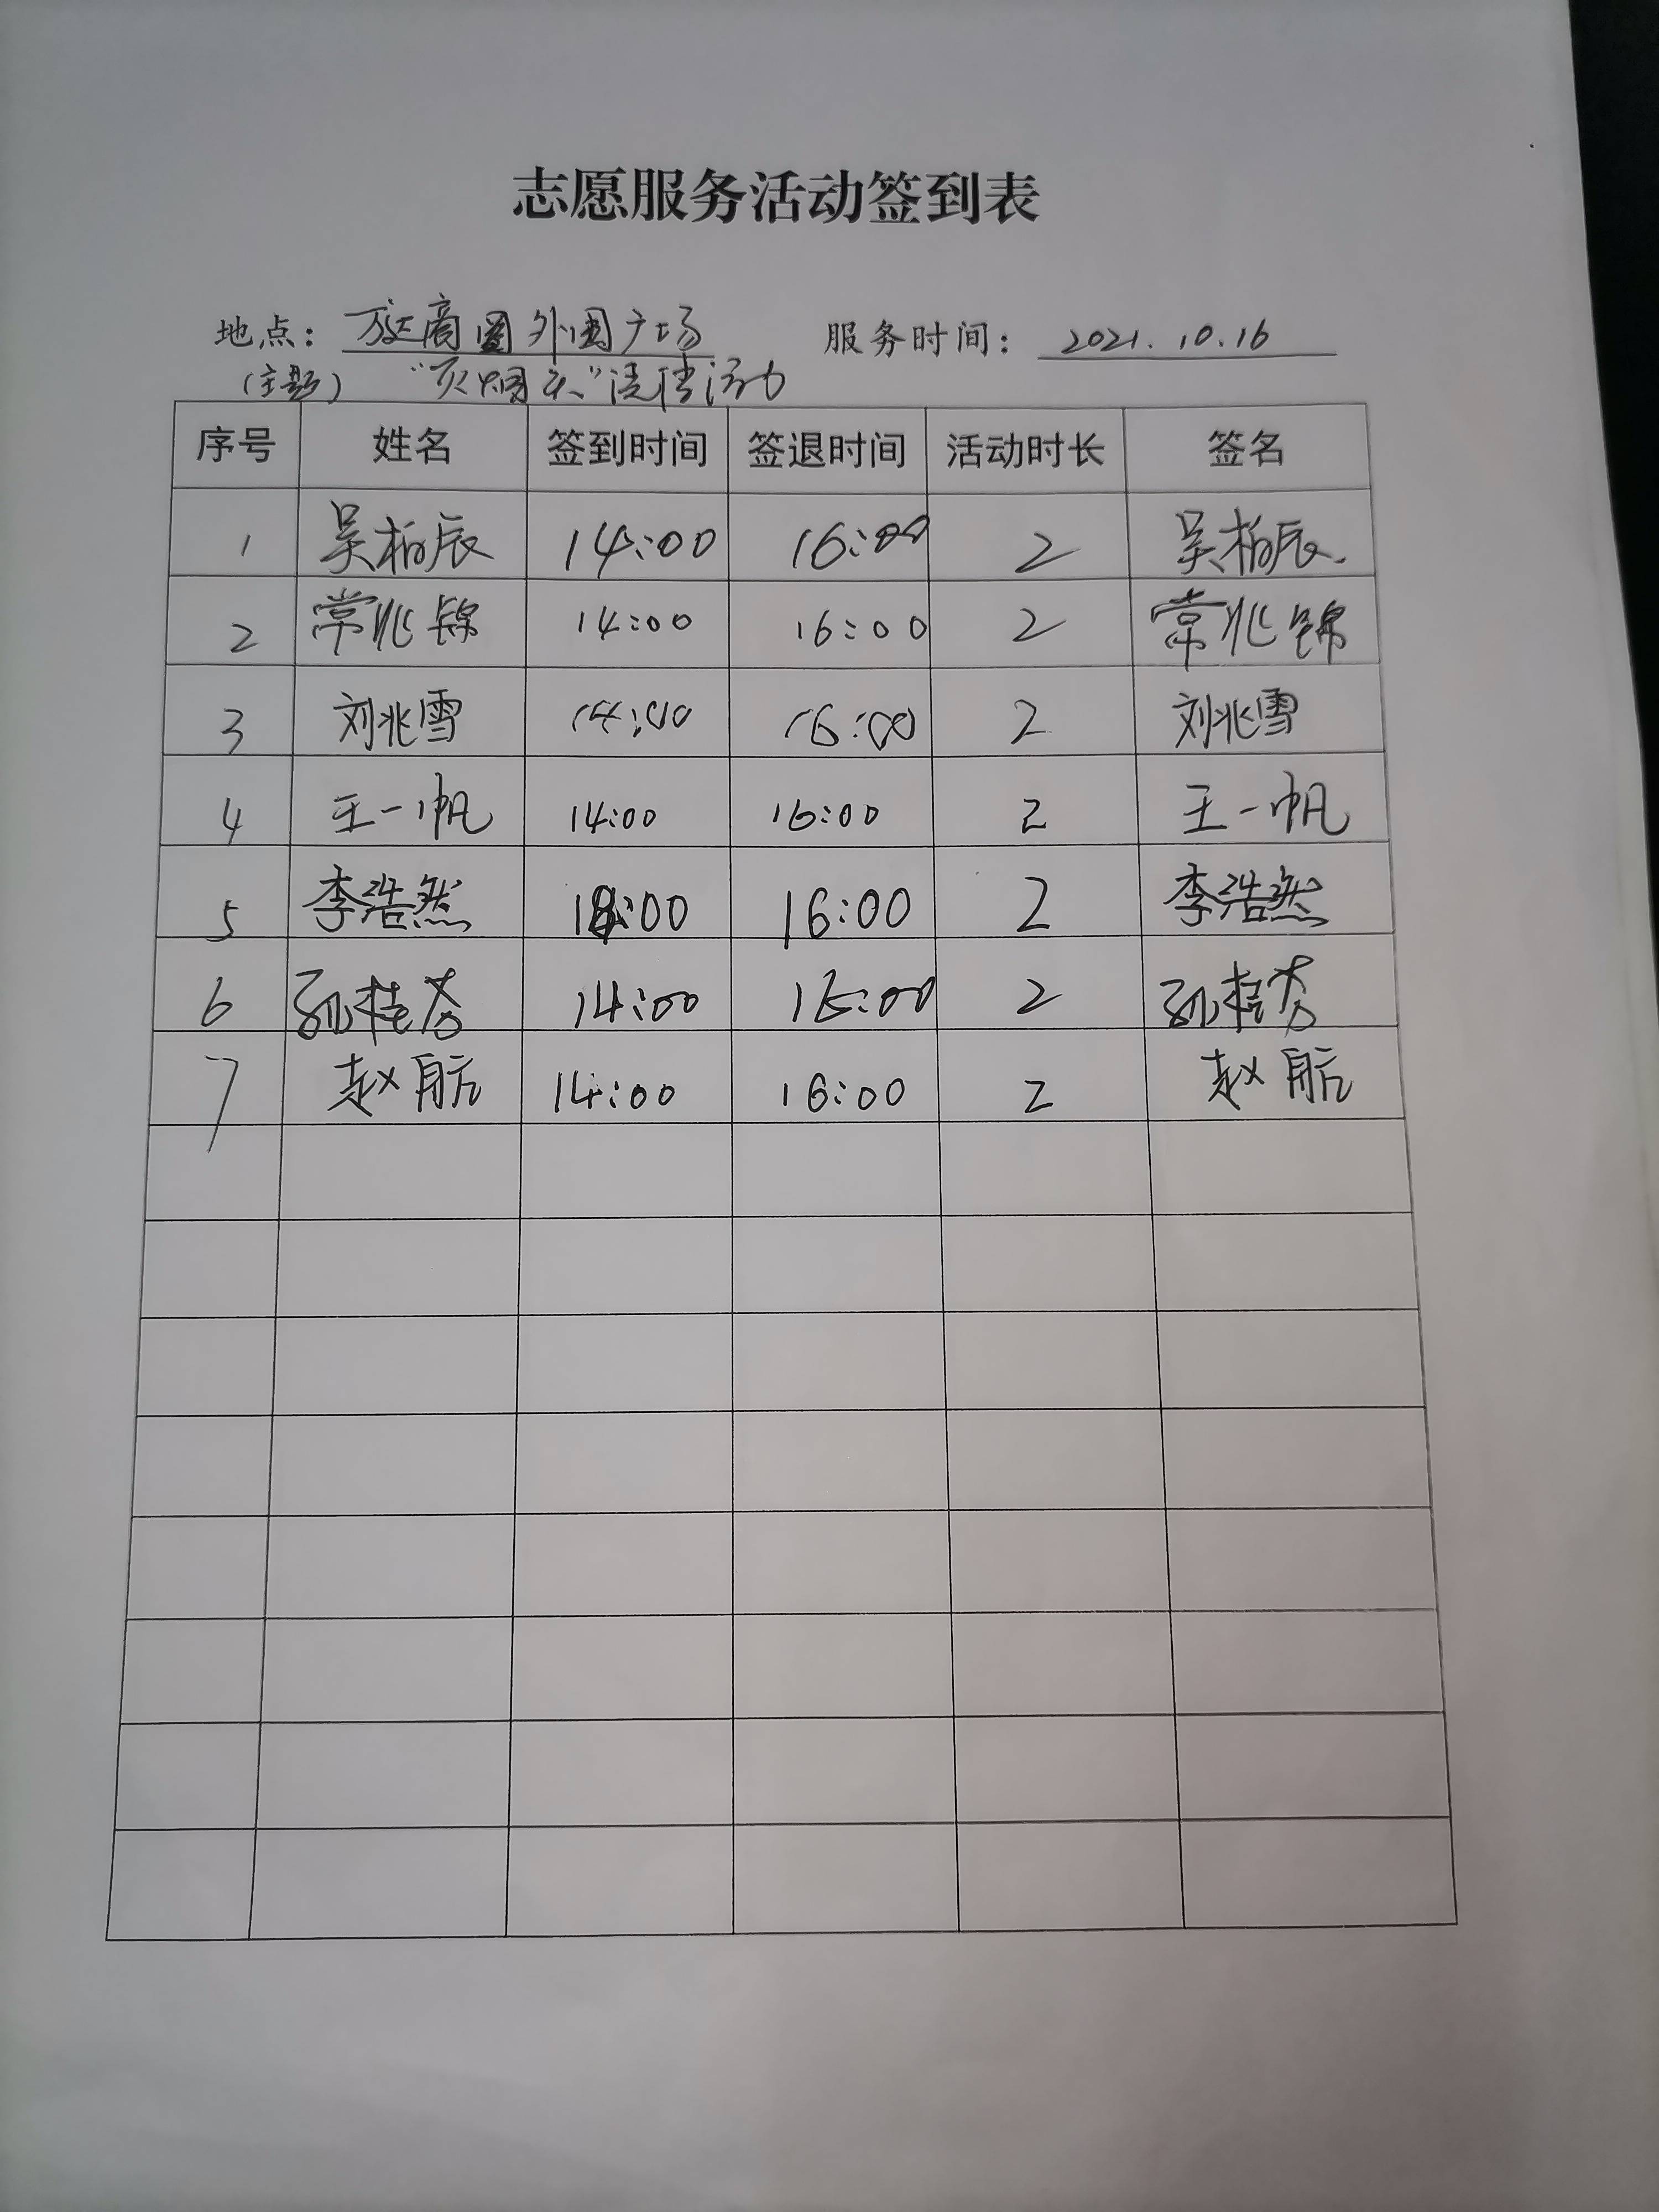 志愿服务活动签到表
地点：万达商圈外围广场 服务时间：2021.10.16
（主题） “灭烟头”清洁活动
序号 姓名 签到时间 签退时间 活动时长 签名
1 吴柏辰 14:00 16:00 2 吴柏辰
2 常兆锦 14:00 16:00 2 常兆锦
3 刘兆雪 14:00 16:00 2 刘兆雪
4 王一帆 14:00 16:00 2 王一帆
5 李浩然 14:00 16:00 2 李浩然
6 孙桂芬 14:00 16:00 2 孙桂芬
7 赵航 14:00 16:00 2 赵航